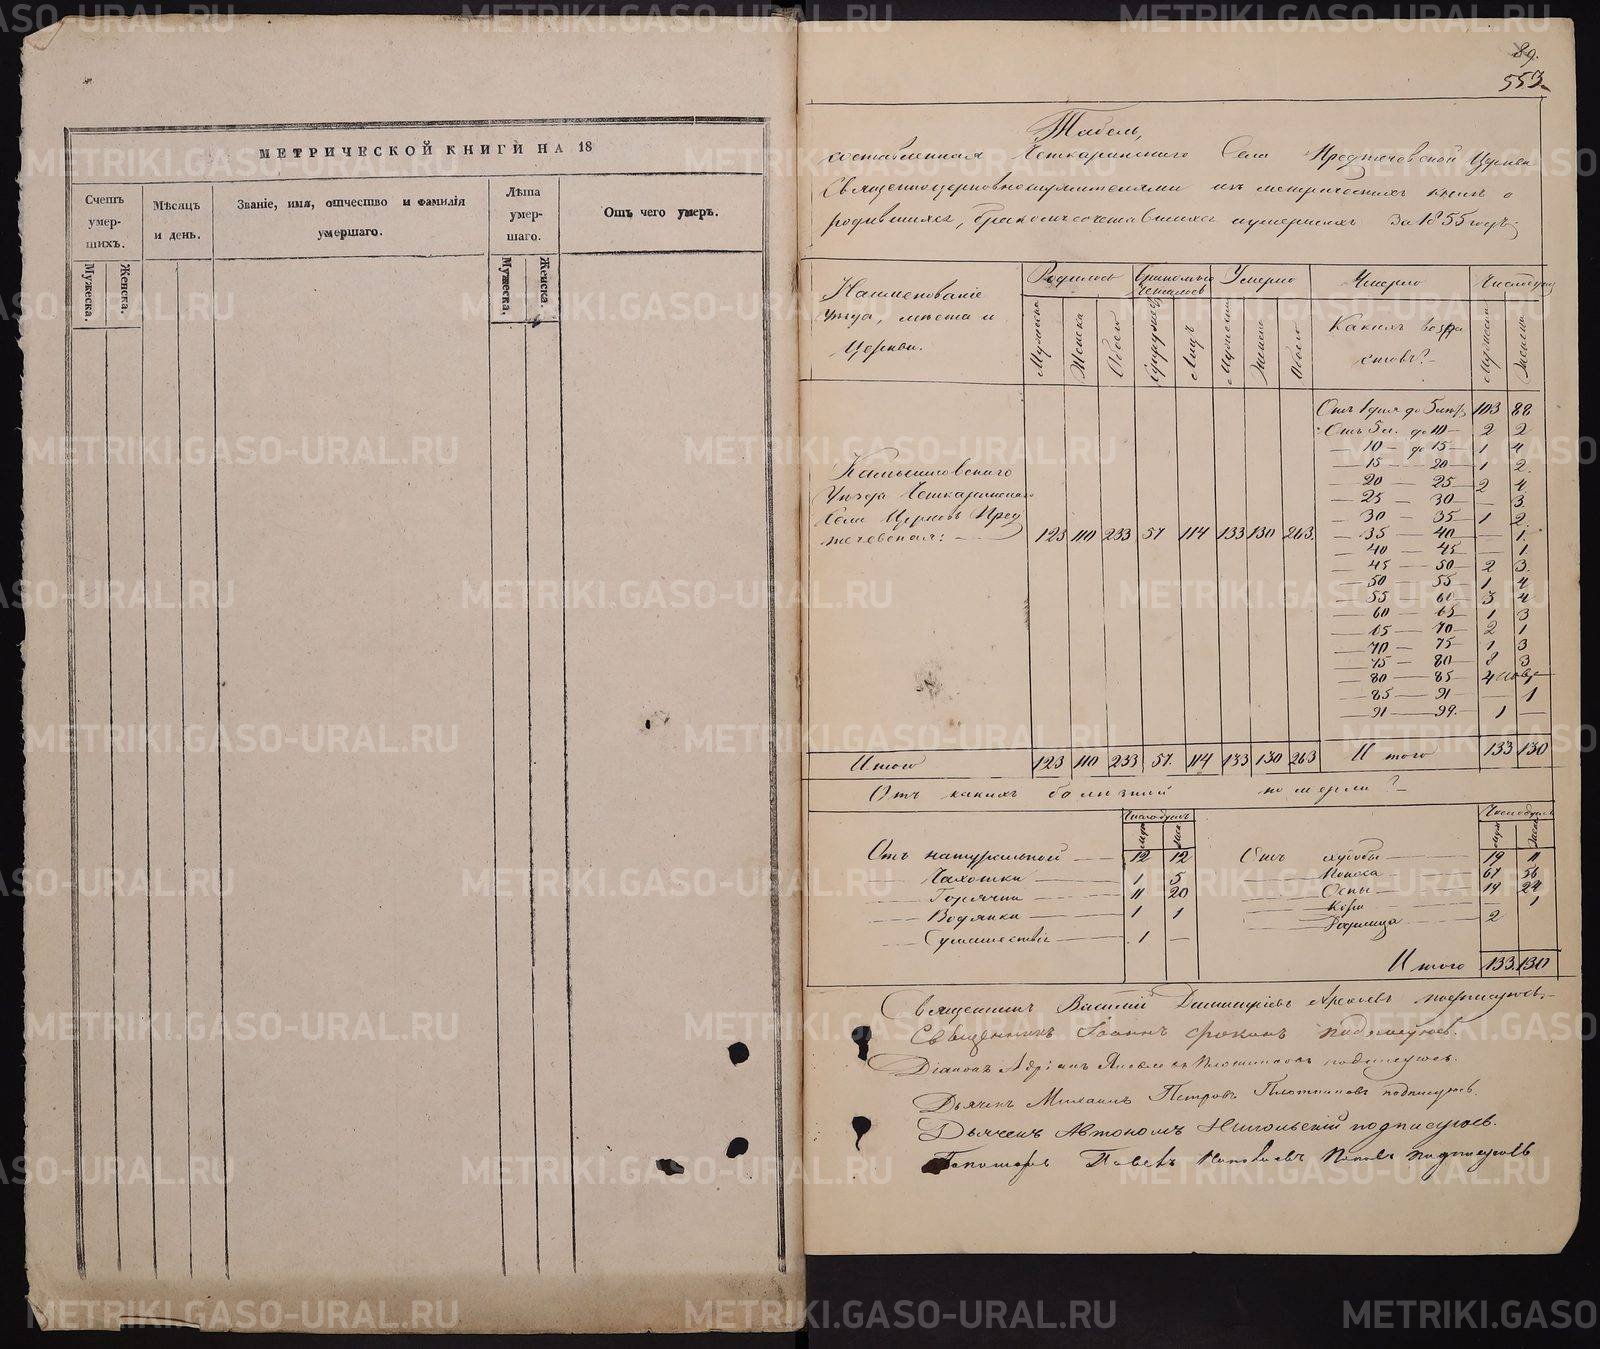 МЕТРИЧЕСКОЙ КНИГИ НА 18
Счетъ умер-шихъ.
Мѣсяцъ и день.
Званіе, имя, отчество и фамилія умершаго.
Лѣта умер-шаго.
Отъ чего умеръ.
Мужеска.
Женска.
Мужеска.
Женска.
89.
553.
Табель,
составленная Четкаринскаго Села Предтечевской Церкви
Священноцерковнослужителями изъ метрическихъ книгъ о
родившихся, бракомъ сочетавшихся и умершихъ за 1855 годъ.
Наименованіе Уѣзда, мѣста и Церкви.
Родилось
Умерло
Умерло
Число душъ
Мужеска
Женска
Обоего
Супружествъ
Лицъ
Мужеска
Женска
Обоего
Какихъ возра стовъ?
Мужеска
Женска
Камышловскаго
Уѣзда Четкаринскаго
Села Церковь Пред
течевская:
123 110 233 57 114 133 130 263.
Отъ 1 дня до 5 лѣтъ 103 88
Отъ 5 л. до 10 2 2
10 до 15 1 4
15 20 1 2.
20 25 2 4
25 30 — 3
30 35 1 2
35 40 — 1.
40 45 — 1.
45 50 2 3.
50 55 1 4
55 60 3 4
60 65 1 3
65 70 2 1
70 75 1 3
75 80 8 3
80 85 4
85 91 — 1
91 99. 1 —
Итого 123 110 233 57. 114 133 130 263 Итого 133 130
Отъ какихъ болѣзней померли?
Число душъ
Число душъ
Отъ натуральной 12 12
Чахотки 1 5
Горячки 11 20
Водянки 1 1
Сумашествія 1 —
Отъ худобы 19 11
Поноса 67 56
Оспы 19 24
Кори 1
Родимца 2
Итого 133. 130
Священникъ Василій Димитріевъ подписуюсь.
Священникъ Іоаннъ подписуюсь.
Діаконъ Адріанъ Яковлевъ Плотниковъ подписуюсь.
Дьячекъ Михаилъ Петровъ Плотниковъ подписуюсь.
Дьячекъ Автономъ Никольскій подписуюсь.
Пономарь Павелъ Поповъ подписуюсь
METRIKI.GASO-URAL.RU